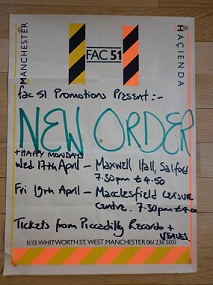 MANCHESTER
FAC 51
HAÇIENDA
Fac 51 Promotions Present:-
NEW ORDER
+ HAPPY MONDAYS
Wed 17th April - Maxwell Hall, Salford
7.30pm £4.50
Fri 19th April - Macclesfield Leisure
Centre. 7.30pm £4.00
Tickets from Piccadilly Records +
VENUES
11/13 WHITWORTH ST, WEST MANCHESTER 061 236 5051